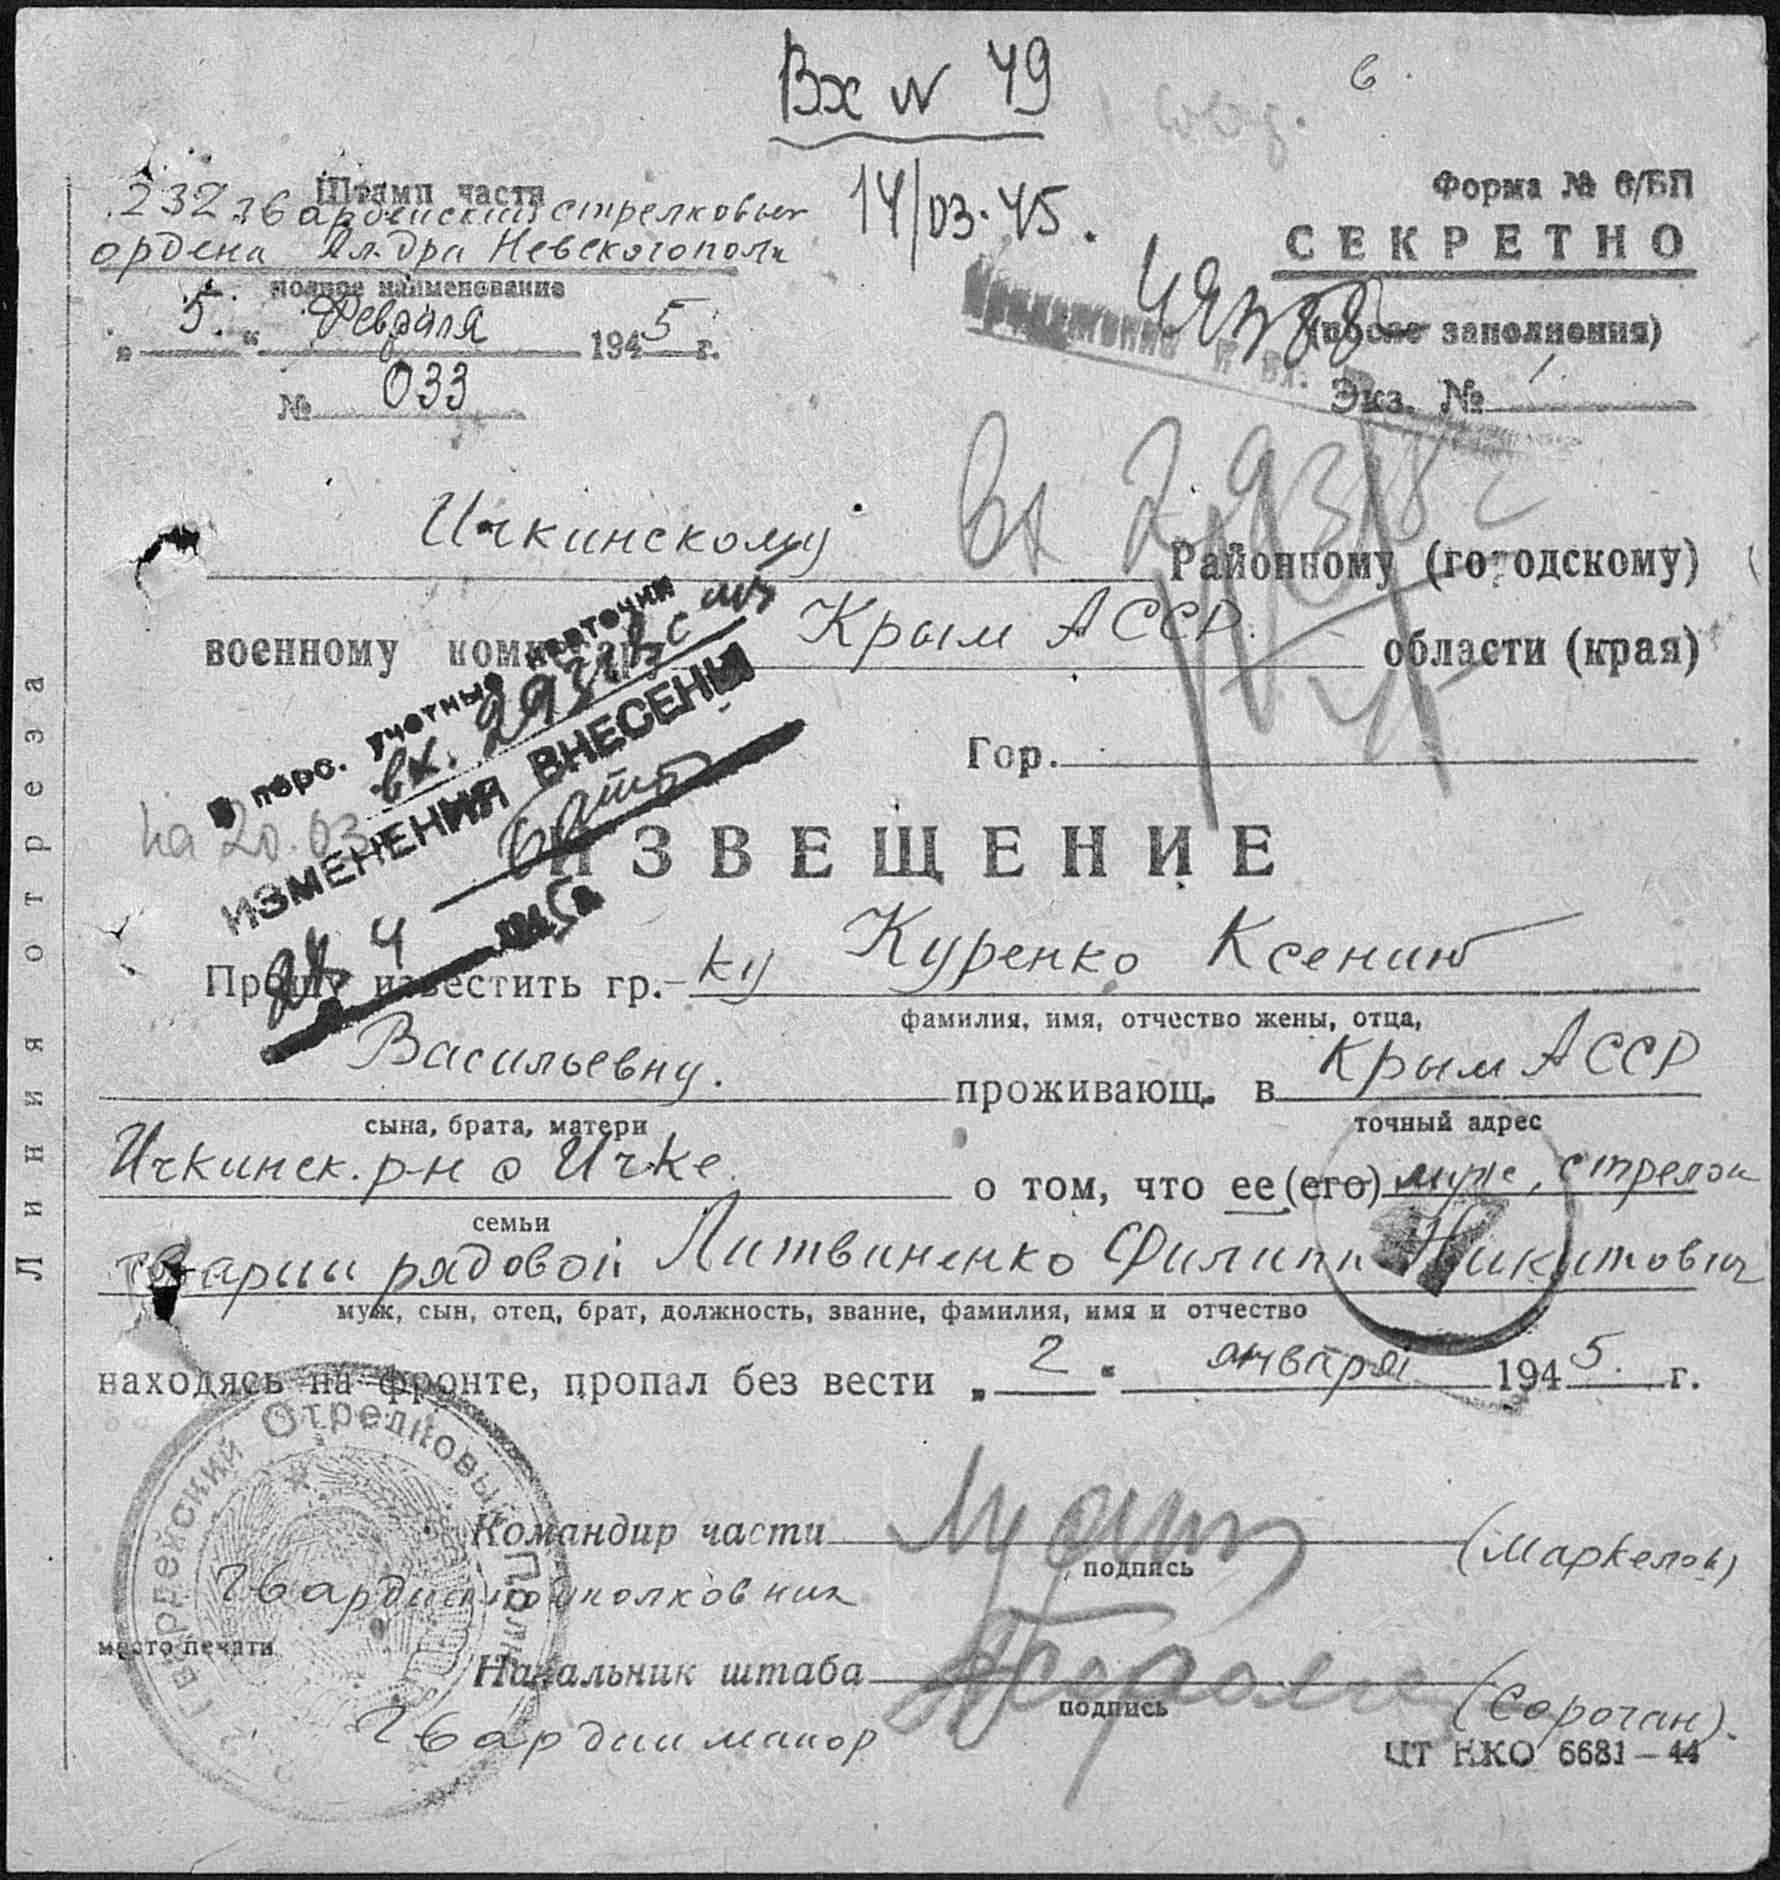 Вх N 49
14/03.45.
Форма № 6/БП
СЕКРЕТНО
(после заполнения)
Экз. №
Штамп части
232 гвардейский стрелковый
ордена Ал-дра Невского полк
полное наименование
„5." Февраля 1945 г.
№ 033
Приложение к вх.
вх 29318с
Ичкинскому Районному (городскому)
военному комиссару Крым АССР. области (края)
Гор.
В перс. учетные карточки
вх. 29318с
ИЗМЕНЕНИЯ ВНЕСЕНЫ
4 1945 г.
на 20.03
ИЗВЕЩЕНИЕ
Прошу известить гр.-ку Куренко Ксению
фамилия, имя, отчество жены, отца,
Васильевну. проживающ. в Крым АССР
сына, брата, матери точный адрес
Ичкинск. р-н с Ичке о том, что ее (его) муж, стрелок
семьи
гвардии рядовой Литвиненко Филипп Никитович
муж, сын, отец, брат, должность, звание, фамилия, имя и отчество
находясь на фронте, пропал без вести „2" января 1945. г.
Гвардейский Стрелковый Полк
Командир части (Маркелов)
подпись
Гвардии подполковник
место печати
Начальник штаба (Сорочан).
подпись
Гвардии майор
ЦТ НКО 6681—44
Линия отреза